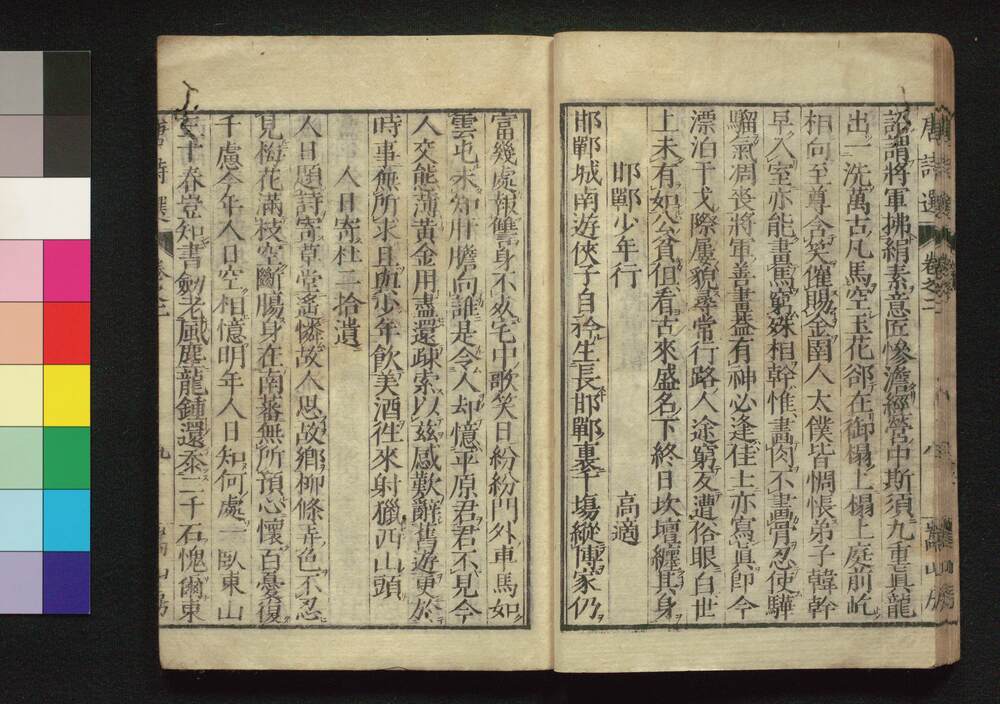 唐詩選 卷之二 八 嵩山房
詔謂將軍拂絹素意匠慘澹經營中斯須九重真龍
出一洗萬古凡馬空玉花郤在御榻上榻上庭前屹
相向至尊含笑催賜金圉人太僕皆惆悵弟子韓幹
早入室亦能畫馬窮殊相幹惟畫肉不畫骨忍使驊
騮氣凋喪將軍善畫蓋有神必逢佳士亦寫真即今
漂泊干戈際屢貌尋常行路人途窮反遭俗眼白世
上未有如公貧但看古來盛名下終日坎壈纏其身
邯鄲少年行 高適
邯鄲城南遊俠子自矜生長邯鄲裏千塲縱博家仍
富幾處報讐身不死宅中歌笑日紛紛門外車馬如
雲屯未知肝膽向誰是令人却憶平原君君不見今
人交態薄黃金用盡還疎索以茲感歎辭舊遊更於
時事無所求且與少年飲美酒徃來射獵西山頭
人日寄杜二拾遺
人日題詩寄草堂遙憐故人思故鄉柳條弄色不忍
見梅花滿枝空斷膓身在南蕃無所預心懷百憂復
千慮今年人日空相憶明年人日知何處一臥東山
三十春豈知書劒老風塵龍鍾還忝二千石愧爾東
唐詩選 卷之二 九 嵩山房